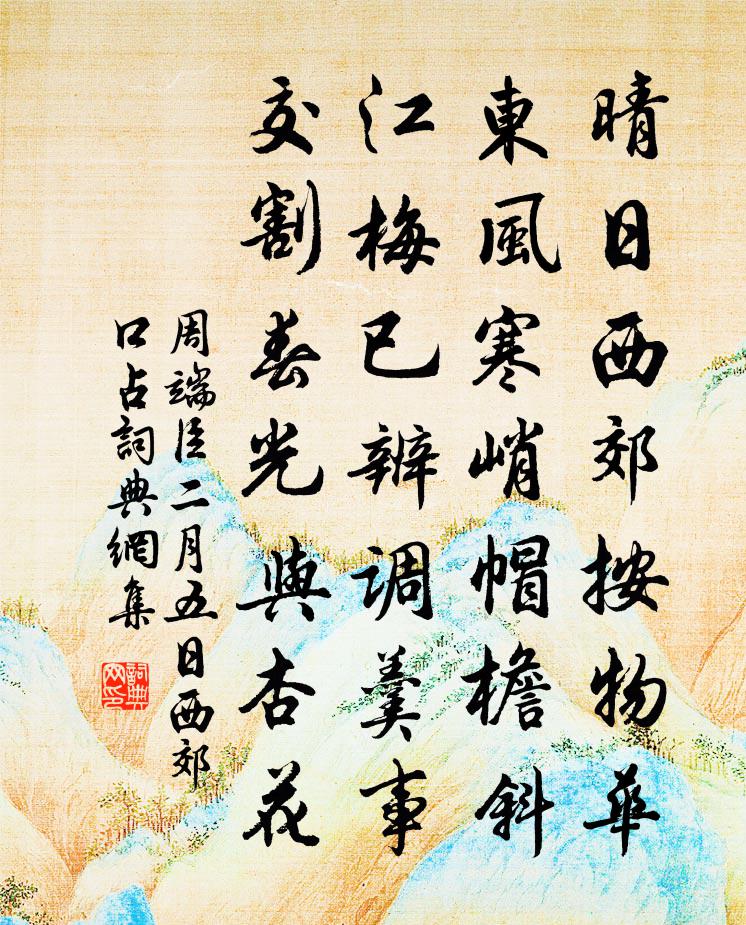 晴日西郊按物華
東風寒峭帽檐斜
江梅已辦调羹事
交割春光與杏花
周端臣二月五日西郊
口占詞典網集
詞典網印